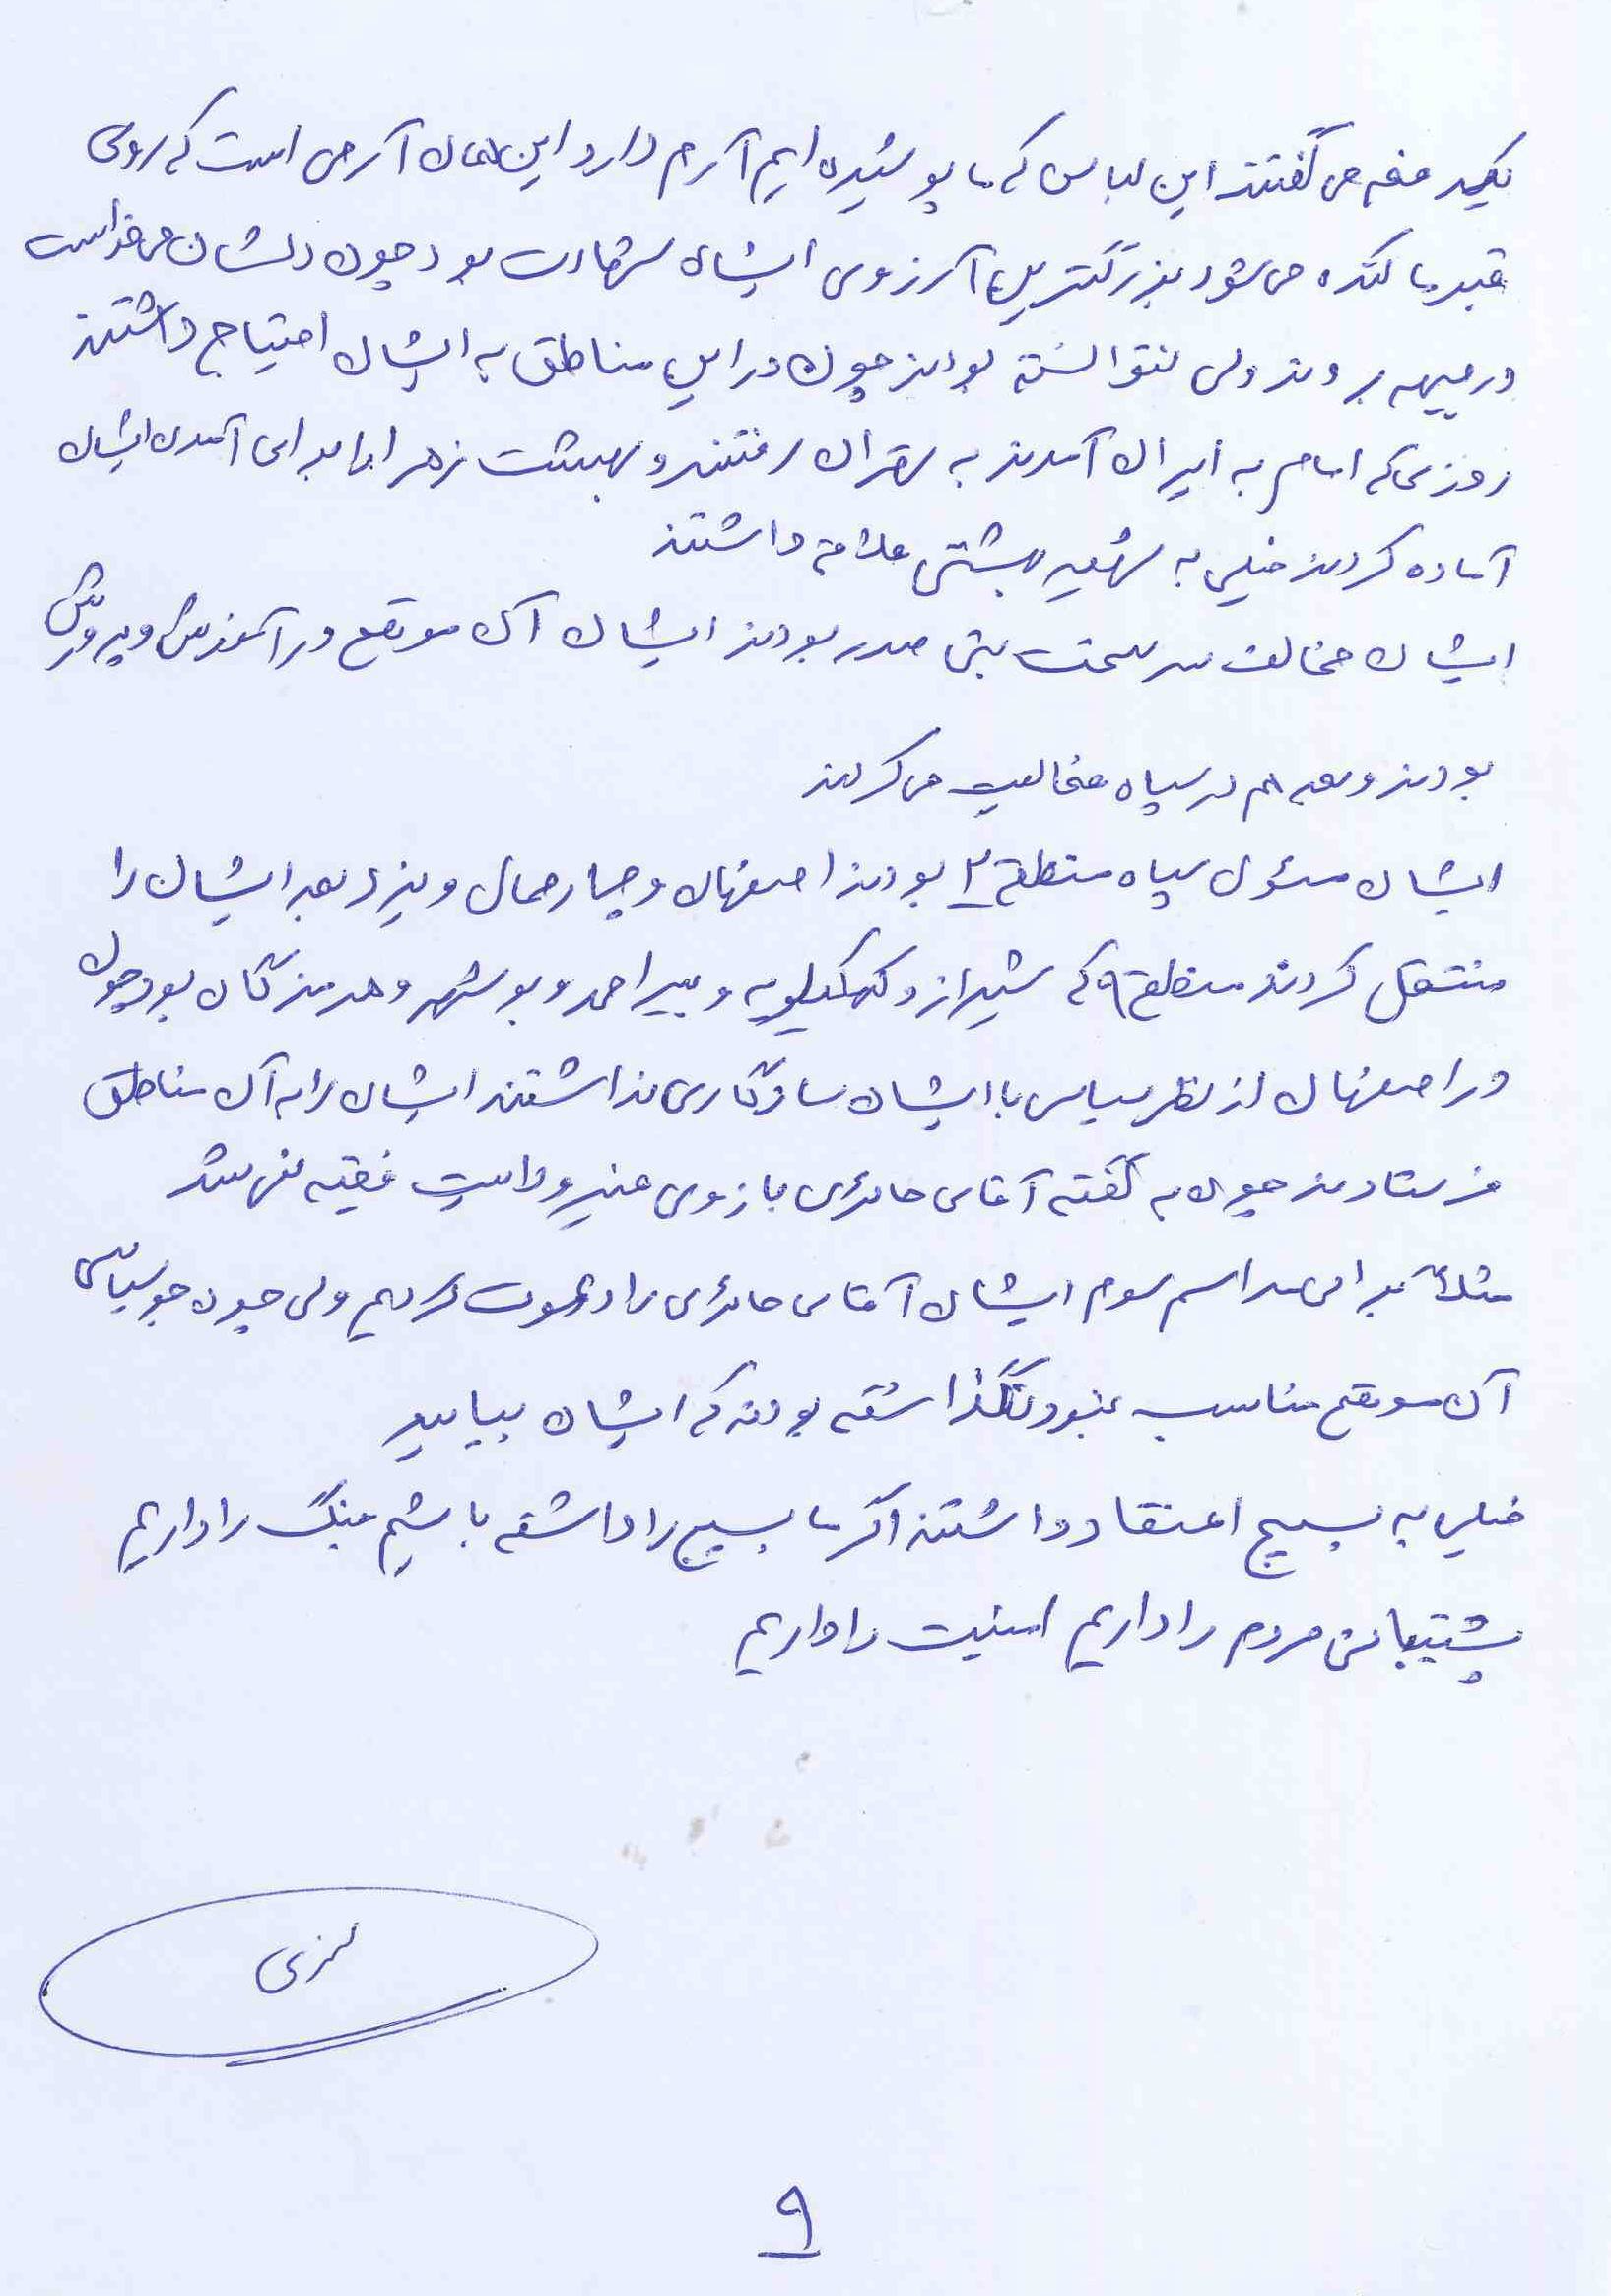 یکید دفعه می گفتند این لباس که ما پوشیده ایم آرم دارد این همان آرمی است که روی
قبر ما کنده می شود بزرگترین آرزوی ایشان شهادت بود چون دلشان می خواست
در جبهه بروند ولی نتوانسته بودند چون در این مناطق به ایشان احتیاج داشتند
روزی که امام به ایران آمدند به تهران رفتند و بهشت زهرا را برای آمدن ایشان
آماده کردند خیلی به شهید بهشتی علاقه داشتند
ایشان مخالف سرسخت بنی صدر بودند ایشان آن موقع در آموزش و پرورش
بودند و بعد هم در سپاه فعالیت می کردند
ایشان مسئول سپاه منطقه ۲ بودند اصفهان و چهارمحال و یزد بعد ایشان را
منتقل کردند منطقه ۹ که شیراز و کهکیلویه و بویراحمد و بوشهر و هرمزگان بود چون
در اصفهان از نظر سیاسی با ایشان سازگاری نداشتند ایشان را به آن مناطق
فرستادند چون به گفته آقای حائری بازوی ولایت فقیه
مثلاً برای مراسم سوم ایشان آقای حائری را دعوت کردیم ولی چون جو سیاسی
آن موقع مناسب نبود نگذاشته بودند که ایشان بیایند
خیلی به بسیج اعتقاد داشتند اگر ما بسیج را داشته باشیم جنگ را داریم
پشتیبانی مردم را داریم امنیت را داریم
۹